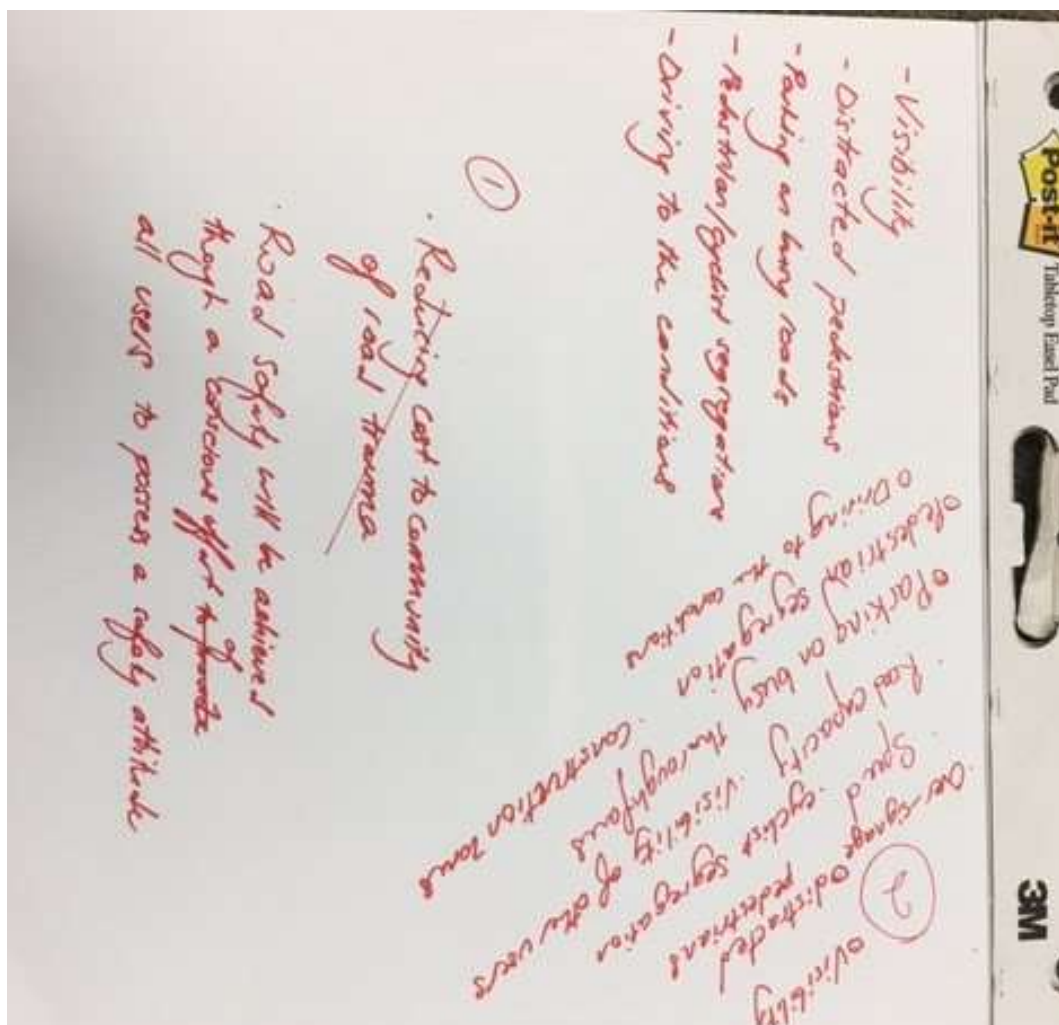 - Visibility
- Distracted pedestrians
- Parking on busy roads
- Pedestrian/cyclist segregation
- Driving to the conditions
①
· Reducing cost to community
of road trauma
· Road safety will be achieved
though a conscious effort to promote
of
all users to posses a safety attitude
②
o Visibility
o distracted
pedestrians
· Over-synage
· Speed
· cyclist segregation
· Road capacity
· Visibility of other users
o Parking on busy
thoroughfares
o Pedestrian
segregation
· Construction zones
o Driving to
the conditions
Post-it
Tabletop Easel Pad
3M